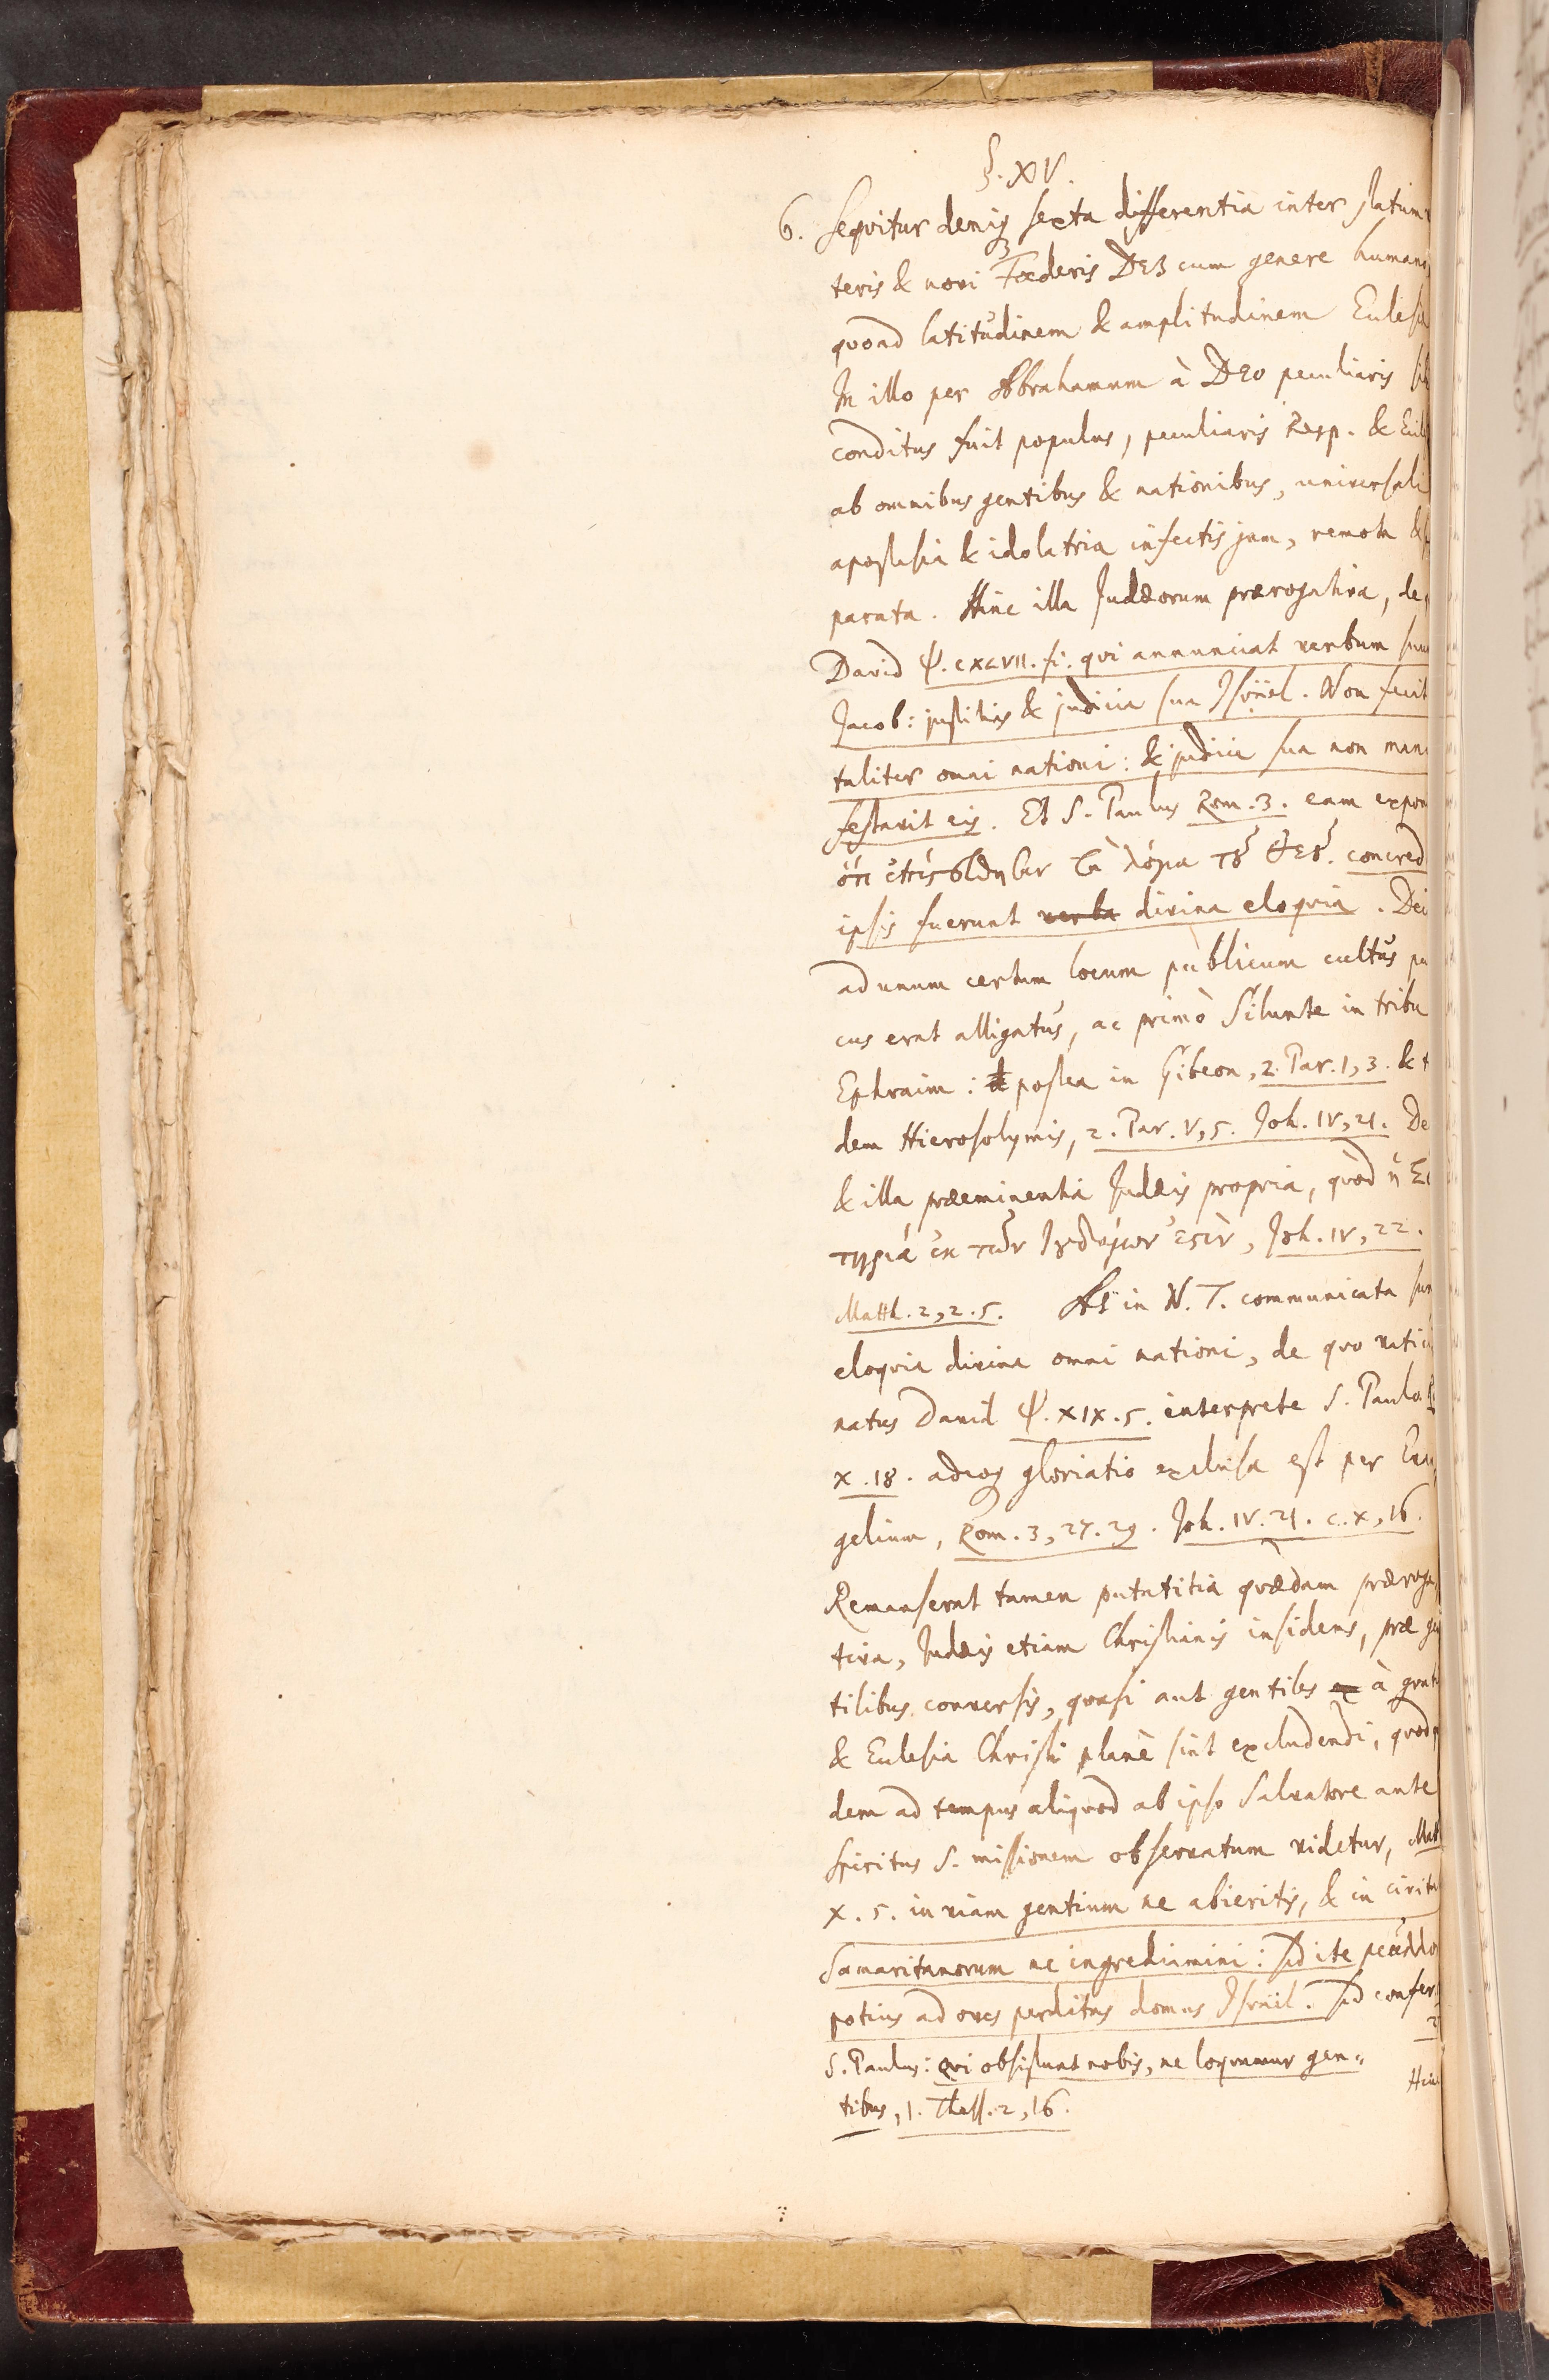 §. XV.
6. Sequitur deniq; sexta differentia inter statum
teris & novi Fœderis DEI cum genere humano,
quoad latitudinem & amplitudinem Eccles
In illo per Abrahamum à DEO peculiaris si
conditus fuit populus, peculiaris Resp. & Eccl
ab omnibus gentibus & nationibus, universali
apostasia & idolatria infectis jam, remota &
parata. Hinc illa Judæorum prærogativa, de
David ψ. CXLVII. fi. qvi annunciat verbum suu
Jacob: justitias & judicia sua Israël. Non fecit
taliter omni nationi: & judicia sua non mani
festavit eis. Et S. Paulus Rom. 3. eam expon
ὅτι ἐπιστεύθησαν τὰ λόγια τ͂ȣ Θε͂ȣ. concred
ipsis fuerunt verba divina eloqvia. Dei
ad unum certum locum publicum cultûs pu
cus erat alligatus, ac primò Silunte in tribu
Ephraim: & postea in Gibeon, 2. Par. 1, 3. & t
dem Hierosolymis, 2. Par. V, 5. Joh. IV, 21. De
& illa præeminentia Judæis propria, qvòd ἡ Σω
τηρία ἐκ τῶν Ἰȣδαίων ἐςὶν, Joh. IV, 22.
Matth. 2, 2. 5. At in N. T. communicata sun
eloqvia divina omni nationi, de qvo vatici
natus David ψ. XIX. 5. interprete S. Paulo R
X. 18. adeoq; gloriatio exclusa est per Evan
gelium, Rom. 3, 27. 29. Joh. IV. 21. c. X, 16.
Remanserat tamen putatitia qvædam præroga,
tiva, Judæis etiam Christianis insidens, præ gen
tilibus conversis, qvasi aut gentiles ex à grati
& Ecclesia Christi planè sint excludendi, qvod
dem ad tempus aliqvod ab ipso Salvatore ante
Spiritus S. missionem observatum videtur, Mat
X. 5. in viam gentium ne abieritis, & in civita
Samaritanorum ne ingrediimini: sed ite
potius ad oves perditas domus Israël. Sed confer
S. Paulus: qvi obsistunt nobis, ne loqvamur gen-
tibus, 1. Thess. 2, 16.